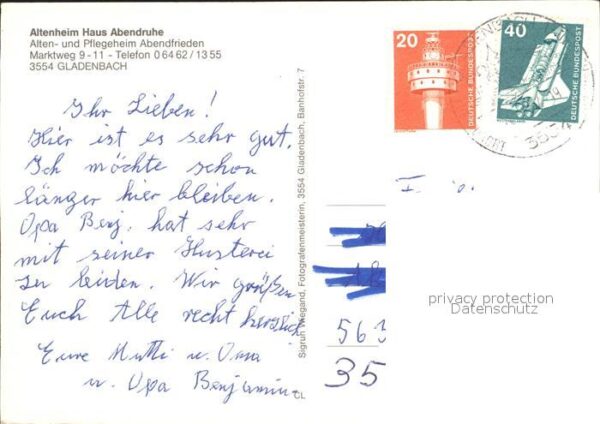 Altenheim Haus Abendruhe
Alten- und Pflegeheim Abendfrieden
Marktweg 9 - 11 - Telefon 0 64 62 / 13 55
3554 GLADENBACH
Ihr Lieben!
Hier ist es sehr gut.
Ich möchte schon
länger hier bleiben.
Opa Benj. hat sehr
mit seiner Husterei
zu leiden. Wir grüßen
Euch Alle recht herzlich
Eure Mutti u. Oma
u. Opa Benjamin
Sigrun Wiegand, Fotografenmeisterin, 3554 Gladenbach, Bahnhofstr. 7
20
DEUTSCHE BUNDESPOST
40
DEUTSCHE BUNDESPOST
3554
563
35
privacy protection
Datenschutz